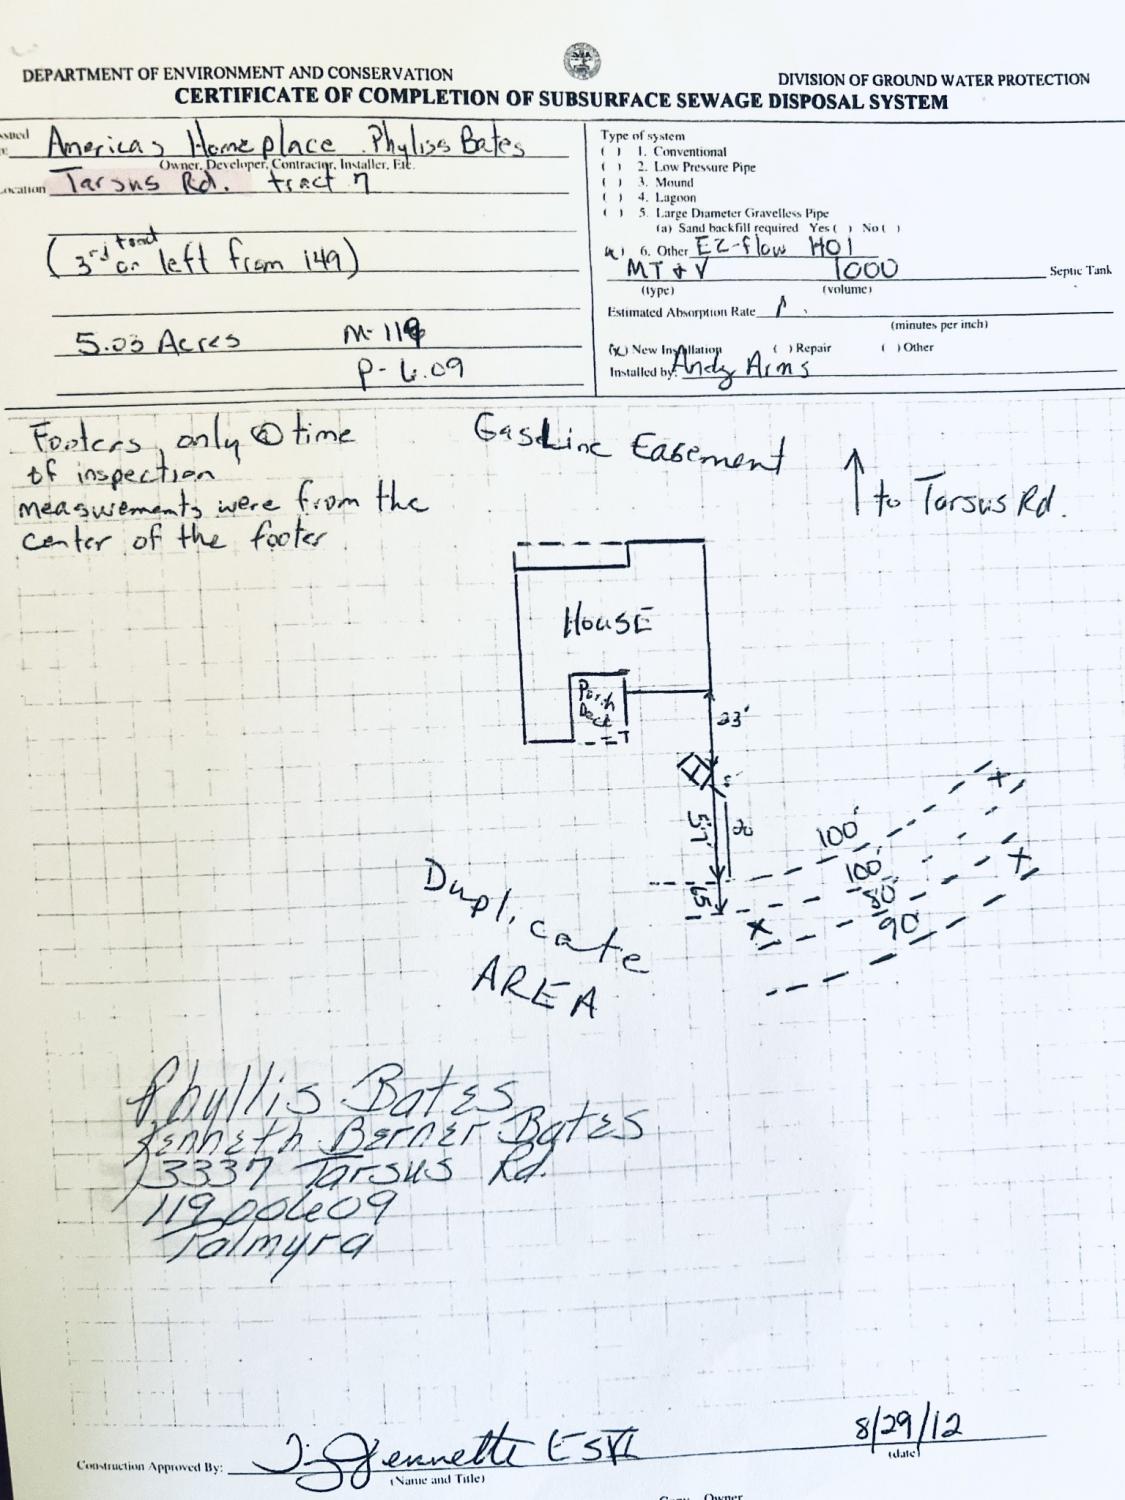 DEPARTMENT OF ENVIRONMENT AND CONSERVATION
DIVISION OF GROUND WATER PROTECTION
CERTIFICATE OF COMPLETION OF SUBSURFACE SEWAGE DISPOSAL SYSTEM
Americas Homeplace Phyliss Bates
Owner, Developer, Contractor, Installer, Etc.
Location Tarsus Rd. tract 7
(3rd tract on left from 149)
5.03 Acres M-119
P-6.09
Type of system
( ) 1. Conventional
( ) 2. Low Pressure Pipe
( ) 3. Mound
( ) 4. Lagoon
( ) 5. Large Diameter Gravelless Pipe
(a) Sand backfill required Yes ( ) No ( )
6. Other EZ-flow HO1
MT & V 1000 Septic Tank
(type) (volume)
Estimated Absorption Rate
(minutes per inch)
(x) New Installation ( ) Repair ( ) Other
Installed by: Andy Arms
Footers only @ time
of inspection
measurements were from the
center of the footer
Gas Line Easement
to Tarsus Rd.
House
Porch
Deck
23'
5'
57'
20
65
100'
100'
80'
90'
Duplicate
AREA
Phyllis Bates
Kenneth Berner Bates
3337 Tarsus Rd.
119 00609
Palmyra
Construction Approved By: Jennette ESVI
(Name and Title)
8/29/12
(date)
Owner